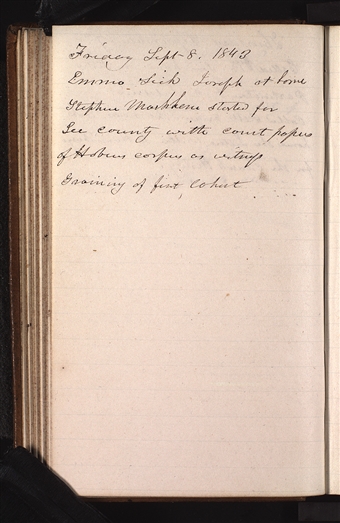 Friday Sept 8. 1843
Emma Sick Joseph at home
Stephen Markham started for
Lee county with court papers
of Habeus corpus as witness
Training of first Cohort